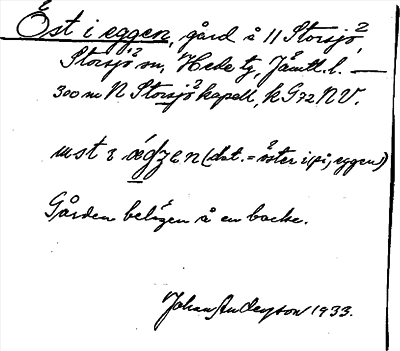 Öst i eggen, gård å 11 Storsjö,
Storsjö sn, Hede tg, Jämtl. l. —
300 m N Storsjö kapell, k G72 NV.
(dat. = öster i(på) eggen)
Gården belägen å en backe.
Johan Andersson 1933.